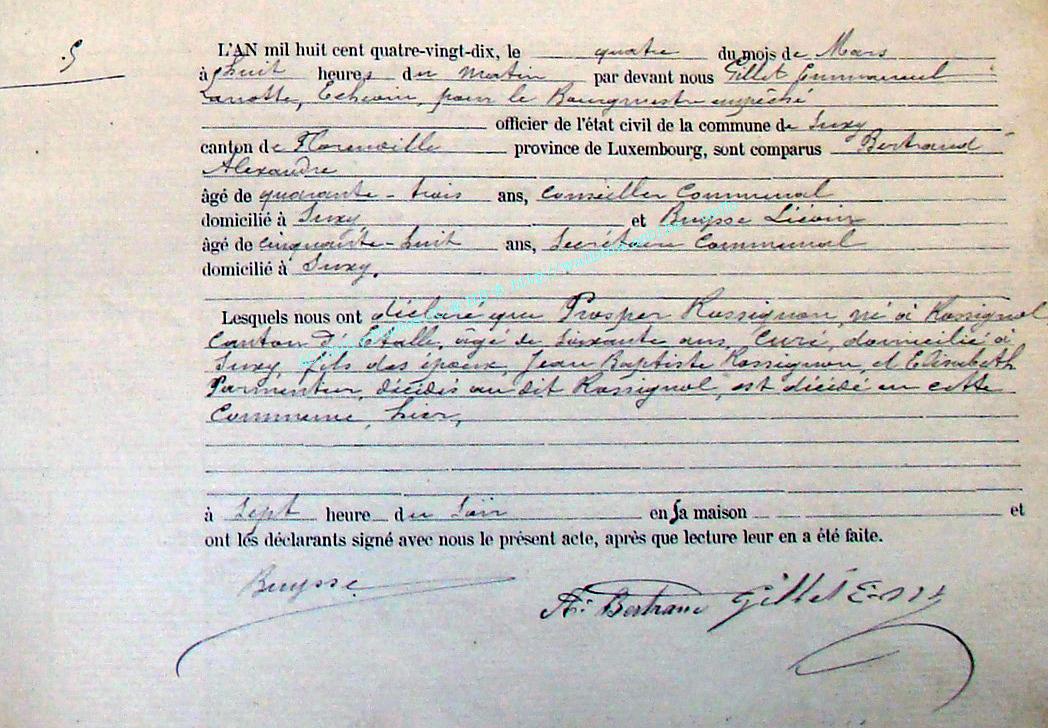 5
L'AN mil huit cent quatre-vingt-dix, le quatre du mois de Mars
à huit heures du matin par devant nous Gillet Emmanuel
Echevin, pour le Bourgmestre empêché
officier de l'état civil de la commune de Suxy
canton de Florenville province de Luxembourg, sont comparus Bertrand
Alexandre
âgé de quarante-trois ans, Conseiller Communal
domicilié à Suxy et Buysse Liévin
âgé de cinquante-huit ans, Secrétaire Communal
domicilié à Suxy.
Lesquels nous ont déclaré que Prosper Rossignon, né à Rossignol,
Canton d'Etalle, âgé de Soixante ans, Curé, domicilié à
Suxy, fils des époux, Jean Baptiste Rossignon, et Elisabeth
Parmentier, décédés au dit Rossignol, est décédé en cette
Commune, hier,
à Sept heure du Soir en sa maison et
ont les déclarants signé avec nous le présent acte, après que lecture leur en a été faite.
Buysse
A. Bertrand Gillet